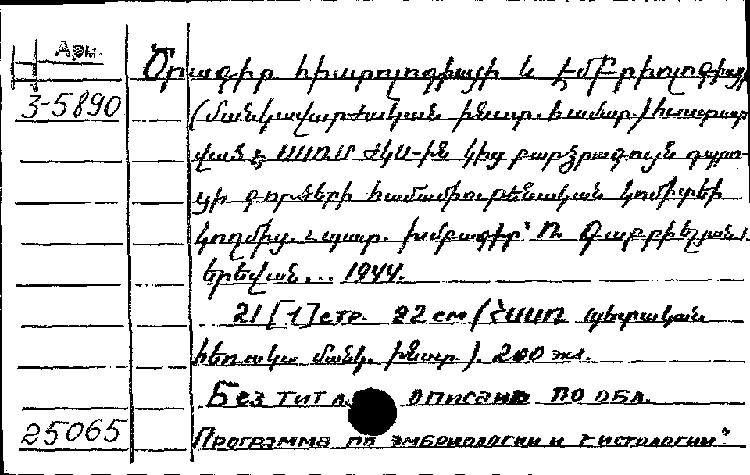 Арм.
Ծրագիր հիստոլոգիայի և էմբրիոլոգիայի
3-5890
(մանկավարժական ինստ. համար.) հաստատ
ված է ՍՍՌՄ ԺԿՍ-ին կից բարձրագույն դպրո
ցի գործերի համամիութենական կոմիտեի
կողմից. պատ. խմբագիր՝ Ռ.
Երևան... 1944.
21 [1] стр. 22 см (ՀՍՍՌ պետական
հեռակա մանկ. ինստ.). 200 экз.
Без тит л. описано по обл.
25065
Программа по эмбриологии и гистологии.